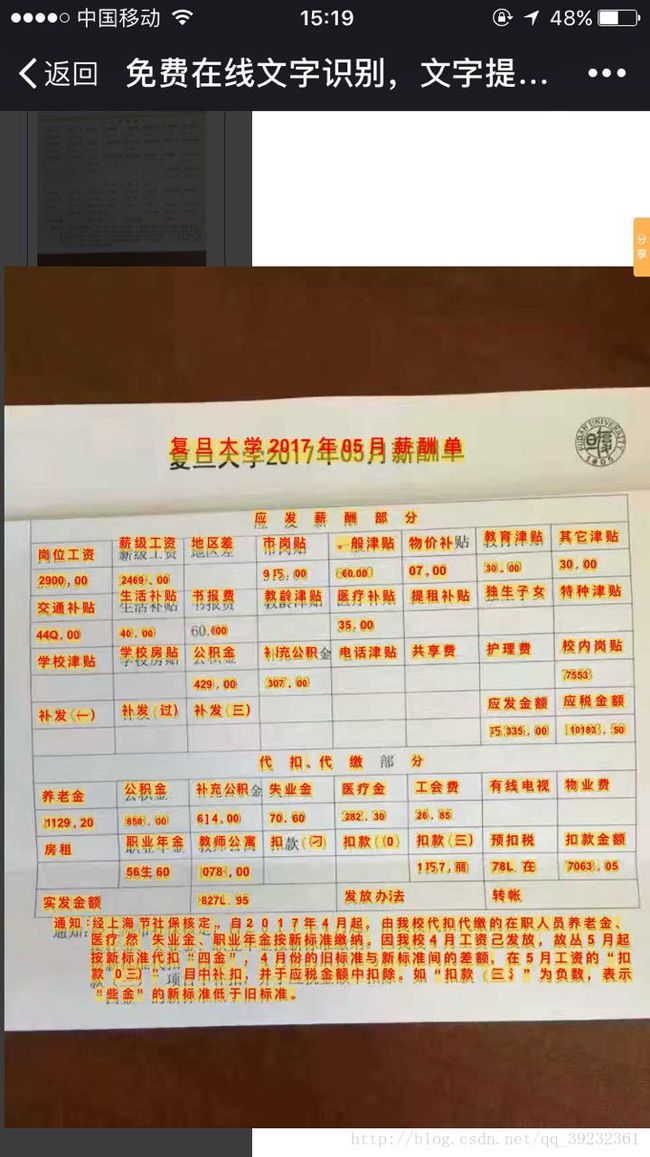 中国移动 15:19 48%
返回 免费在线文字识别，文字提...
分享
复旦大学2017年05月薪酬单
FUDAN UNIVERSITY 1905
应发薪酬部分
岗位工资 薪级工资 地区差 市岗贴 。般津贴 物价补贴 教育津贴 其它津贴
2900.00 2469.00 60.00 07.00 30.00 30.00
交通补贴 生活补贴 书报费 教龄津贴 医疗补贴 提租补贴 独生子女 特种津贴
44Q.00 40.00 35.00
学校津贴 学校房贴 公积金 补充公积金 电话津贴 共享费 护理费 校内岗贴
429.00 307.00 7553
补发(一) 补发(过) 补发(三) 应发金额 应税金额
巧335.00 10183.50
代扣、代缴部分
养老金 公积金 补充公积金 失业金 医疗金 工会费 有线电视 物业费
1129,20 858.00 614.00 70.60 282.30 26.85
房租 职业年金 教师公寓 扣款(刁) 扣款((0) 扣款(三) 预扣税 扣款金额
56生60 078.00 1巧7,丽 78L.在 7063.05
实发金额 827L.95 发放办法 转帐
通知：经上海节社保核定，自2017年4月起，由我校代扣代缴的在职人员养老金、
医疗然 失业金、职业年金按新标准缴纳。因我校4月工资己发放，故丛5月起
按新标准代扣“四金”，4月份的旧标准与新标准间的差额，在5月工资的“扣
款（03）” 目中补扣，并于应税金额中扣除。如“扣款（三氵”为负数，表示
“些金”的新标准低于旧标准。
http://blog.csdn.net/qq_39232361